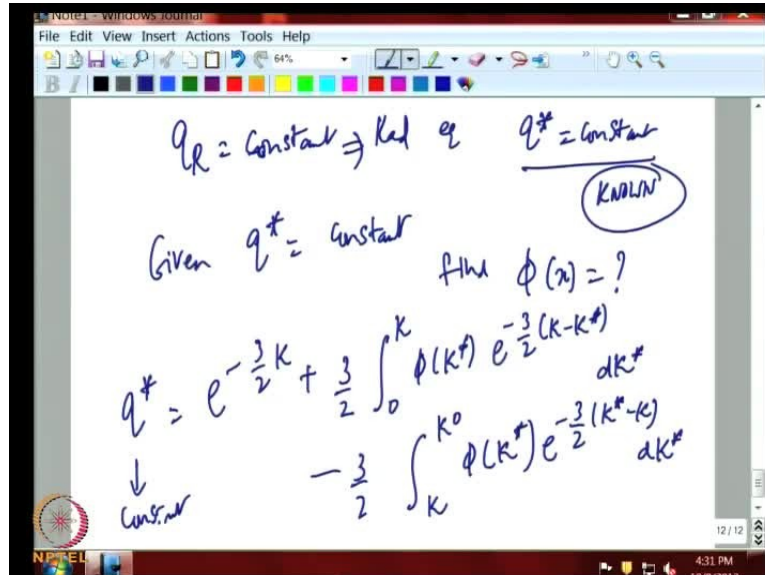 Note1 - Windows Journal
File Edit View Insert Actions Tools Help
64%
B I
q_R = Constant ⇒ Rad eq q* = constant
KNOWN
Given q* = constant find ϕ(x) = ?
q* = e^{-3/2 K} + 3/2 ∫_0^K ϕ(K*) e^{-3/2 (K-K*)} dK*
- 3/2 ∫_K^{K0} ϕ(K*) e^{-3/2 (K*-K)} dK*
↓
Constant
12 / 12
NPTEL
4:31 PM